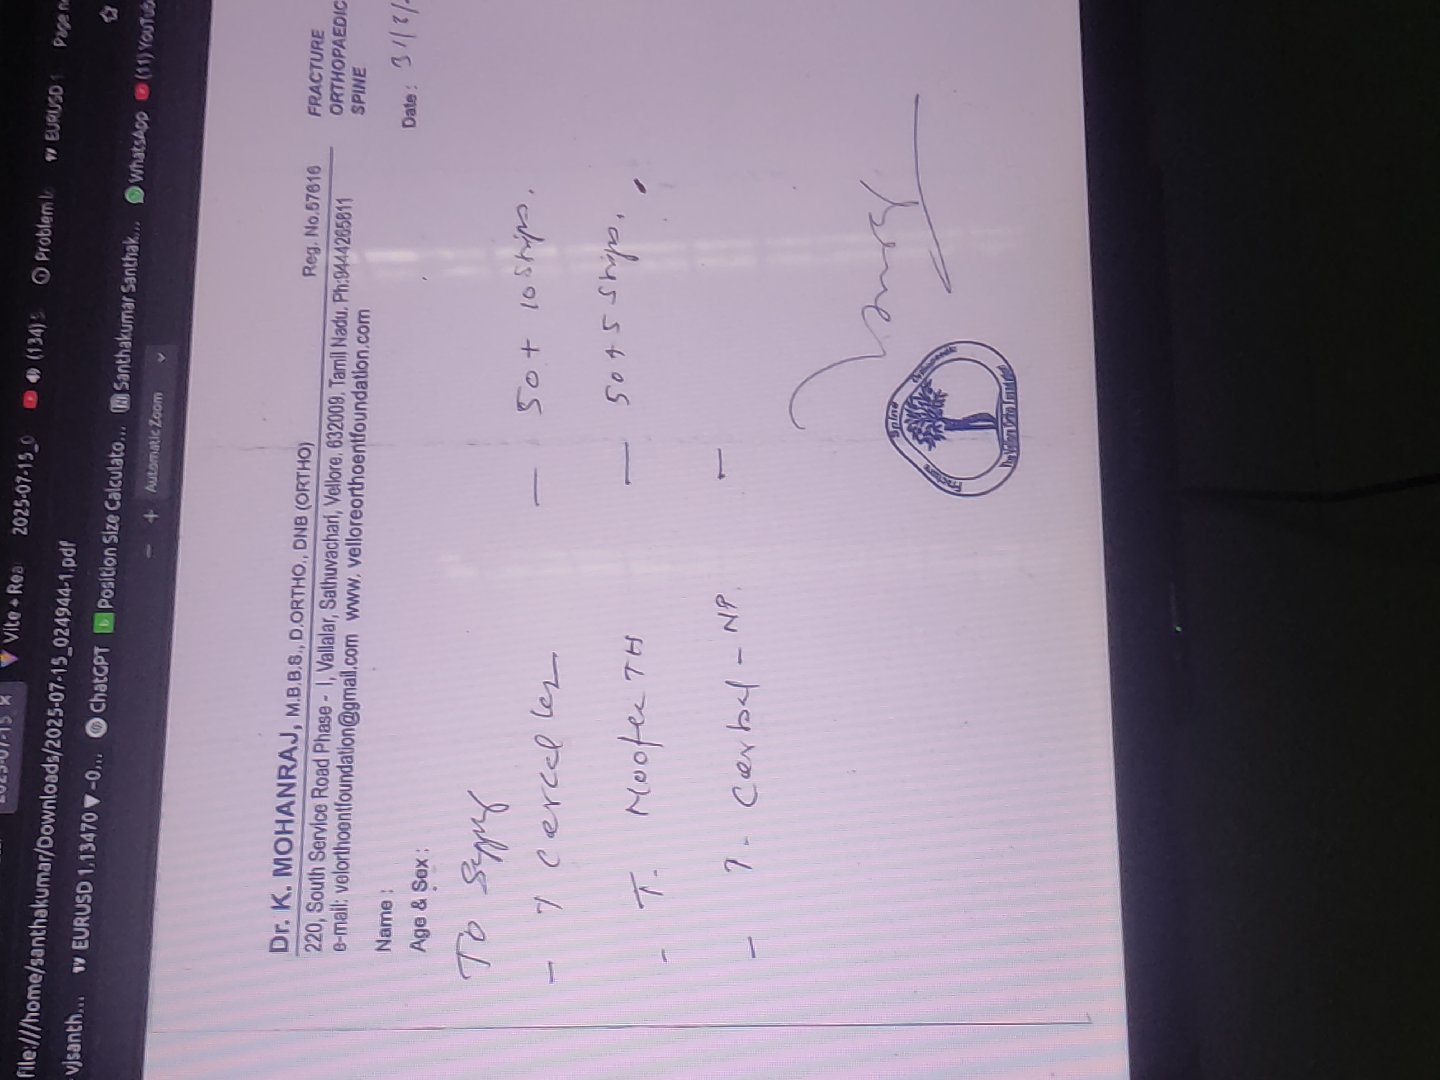 2025-07-15 × Vite + Rea 2025-07-15_0 (134) Problem EURUSD Page n
file:///home/santhakumar/Downloads/2025-07-15_024944-1.pdf
vjsanth... EURUSD 1.13470 ▼ −0... ChatGPT Position Size Calculato... Santhakumar Santhak... WhatsApp (11) YouTub
− + Automatic Zoom
Dr. K. MOHANRAJ, M.B.B.S., D.ORTHO., DNB (ORTHO)
Reg. No.57616
220, South Service Road Phase - I, Vallalar, Sathuvachari, Vellore. 632009. Tamil Nadu. Ph:9444265811
e-mail: velorthoentfoundation@gmail.com www. velloreorthoentfoundation.com
FRACTURE
ORTHOPAEDIC
SPINE
Name :
Age & Sex :
Date :
To
- — 50 + 10 Strips.
- T. TH — 50 + 5 Strips.
- - NP. —
Spine
Fracture